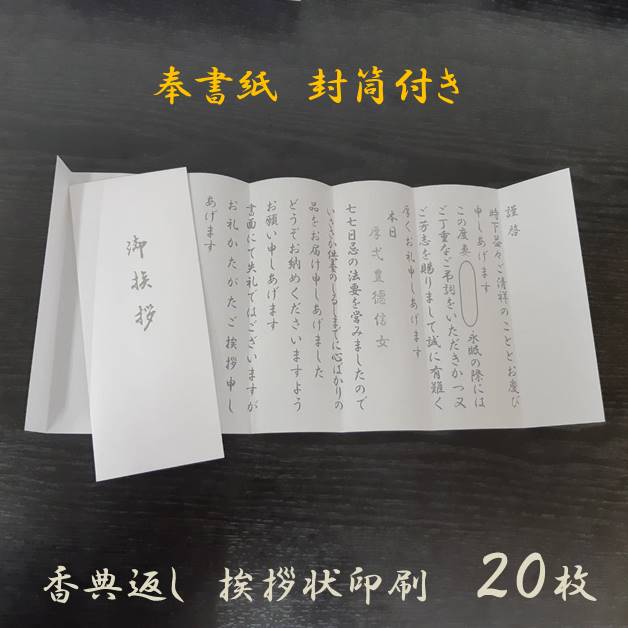 奉書紙 封筒付き
御挨拶
謹啓
時下益々ご清祥のこととお慶び
申しあげます
この度妻 永眠の際には
ご丁重なご弔詞をいただきかつ又
ご芳志を賜りまして誠に有難く
厚くお礼申しあげます
本日
厚戈豊徳信女
七七日忌の法要を営みましたので
いささか供養のしるしまでに心ばかりの
品をお届け申しあげました
どうぞお納めくださいますよう
お願い申しあげます
書面にて失礼ではございますが
お礼かたがたご挨拶申し
あげます
香典返し 挨拶状印刷 20枚